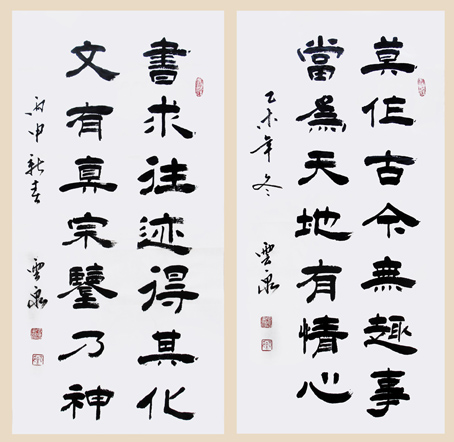 莫作古今無趣事
當為天地有情心
乙未年冬 雲泉
書求往迹得其化
文有真宗鑒乃神
丙申新春 雲泉